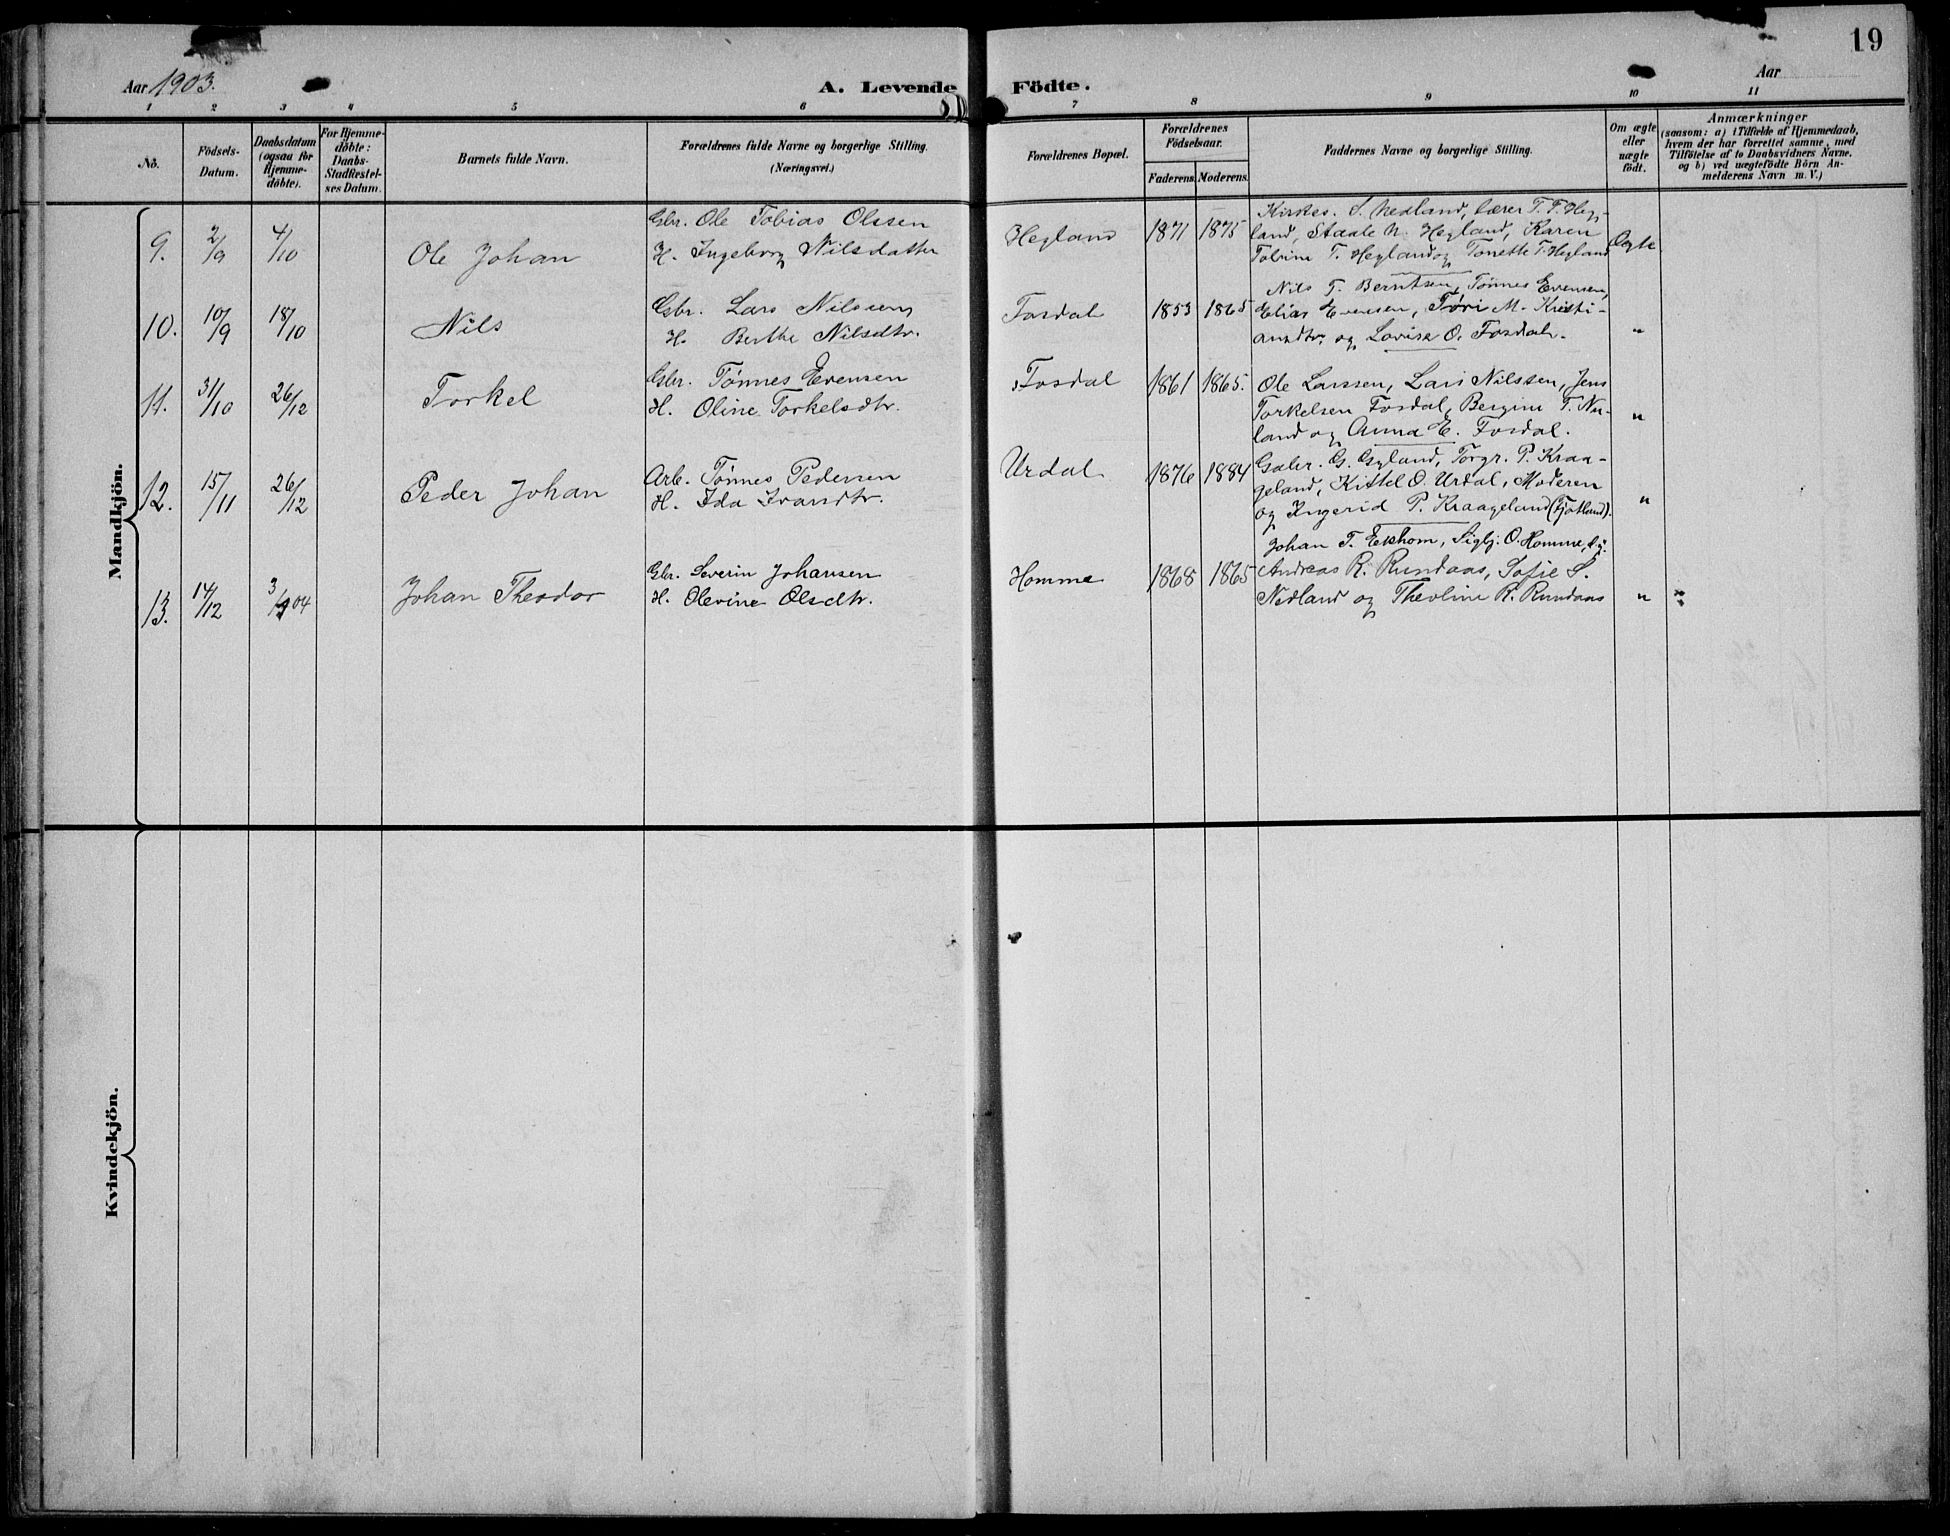 19
Aar 1903.
A. Levende Födte.
Aar
1 2 3 4 5 6 7 8 9 10 11
No.
Födsels-
Datum.
Daabsdatum
(ogsaa for
Hjemme-
döbte).
For Hjemme-
döbte:
Daabs-
Stadfæstel-
ses Datum.
Barnets fulde Navn.
Forældrenes fulde Navne og borgerlige Stilling.
(Næringsvei.)
Forældrenes Bopæl.
Forældrenes
Födselsaar.
Faderens. Moderens.
Faddernes Navne og borgerlige Stilling.
Om ægte
eller
uægte
födt.
Anmærkninger
(saasom: a) i Tilfælde af Hjemmedaab,
hvem der har forrettet samme, med
Tilföielse af to Daabsvidners Navne,
og b) ved uægtefödte Börn An-
melderens Navn m. V.)
Mandkjön.
9. 2/9 4/10 Ole Johan
Gbr. Ole Tobias Olssen
H. Ingeborg Nilsdatter
Hegland 1871 1875
Kirkes. S. Nedland, Lærer T. T. Heg-
land, Staale N. Hegland, Karen
Tobine T. Hegland og Tonette T. Hegland
Ægte
10. 10/9 18/10 Nils
Gbr. Lars Nilssen
H. Berthe Nilsdtr.
Fosdal 1853 1865
Nils T. Berntsen, Tønnes Evensen,
Elias Evensen, Tøri M. Kristi-
ansdtr. og Lovise O. Fosdal.
"
11. 31/10 26/12 Torkel
Gbr. Tønnes Evensen
H. Oline Torkelsdtr.
Fosdal 1861 1865.
Ole Larssen, Lars Nilssen, Jens
Torkelsen Fosdal, Bergine T. Nu-
land og Anna E. Fosdal.
"
12. 15/11 26/12 Peder Johan
Arb. Tønnes Pedersen
H. Ida Ivarsdtr.
Urdal 1876 1884
Gabr. G. Gyland, Torgr. P. Kraa-
geland, Kittel O. Urdal, Moderen
og Ingerid P. Kraageland (Fjotland).
"
13. 14/12 3/1 04 Johan Theodor
Gbr. Severin Johansen
H. Olevine Olsdtr.
Homme 1868 1865
Johan T. Eshom, Sigbj. O. Homme,
Andreas R. Rundaas, Sofie S.
Nedland og Theoline R. Rundaas
"
Kvindekjön.